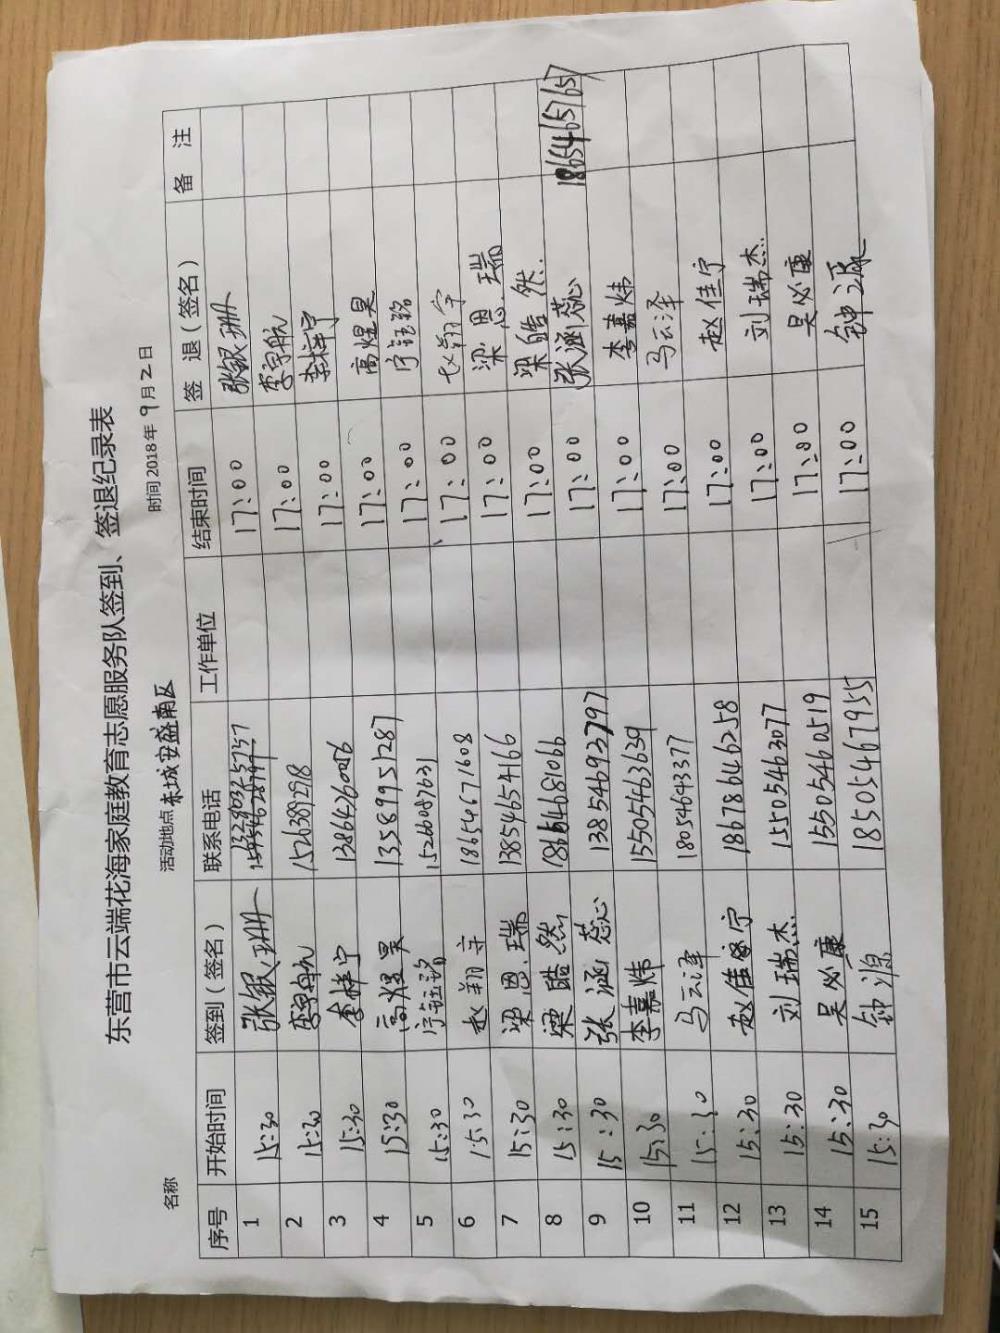 东营市云端花海家庭教育志愿服务队签到、签退纪录表
名称 活动地点 东城安盛南区 时间2018年9月2日
序号 开始时间 签到（签名） 联系电话 工作单位 结束时间 签 退（签名） 备 注
1 15:30 张银珊 17:00 张银珊
2 15:30 李宇航 15263892918 17:00 李宇航
3 15:30 李梓宁 13864260056 17:00 李梓宁
4 15:30 高煜昊 13589951287 17:00 高煜昊
5 15:30 15266087631 17:00
6 15:30 赵翔宇 18654671608 17:00 赵翔宇
7 15:30 梁恩瑞 13854654166 17:00 梁恩瑞
8 15:30 梁皓然 18654681066 17:00 梁皓然
9 15:30 张涵蕊 13854693797 17:00 张涵蕊 18654657657
10 15:30 李嘉炜 15505463639 17:00 李嘉炜
11 15:30 马云泽 18054643377 17:00 马云泽
12 15:30 赵佳宁 18678646258 17:00 赵佳宁
13 15:30 刘瑞杰 15505463077 17:00 刘瑞杰
14 15:30 吴必康 15505460519 17:00 吴必康
15 15:30 钟源 18505467955 17:00 钟源